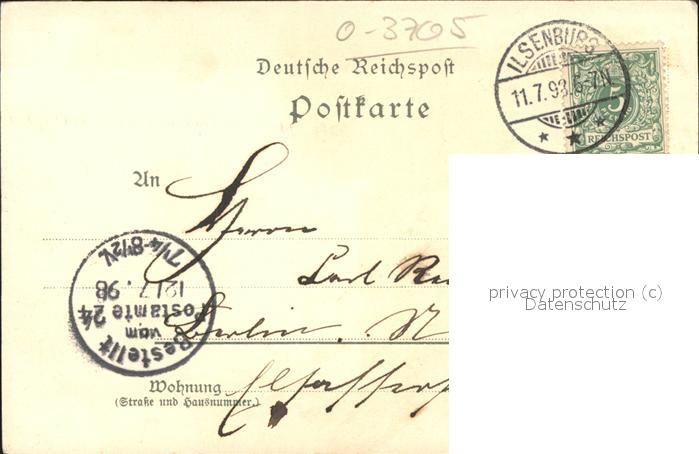 O-3705
Deutsche Reichspost
Postkarte
ILSENBURG
11.7.98.6-7N
5
REICHSPOST
An
Herrn
Carl
Berlin. N
Wohnung
(Straße und Hausnummer.)
Bestellt
vom
Postamte 24
12/7.98
7¼-8½V.
privacy protection (c)
Datenschutz